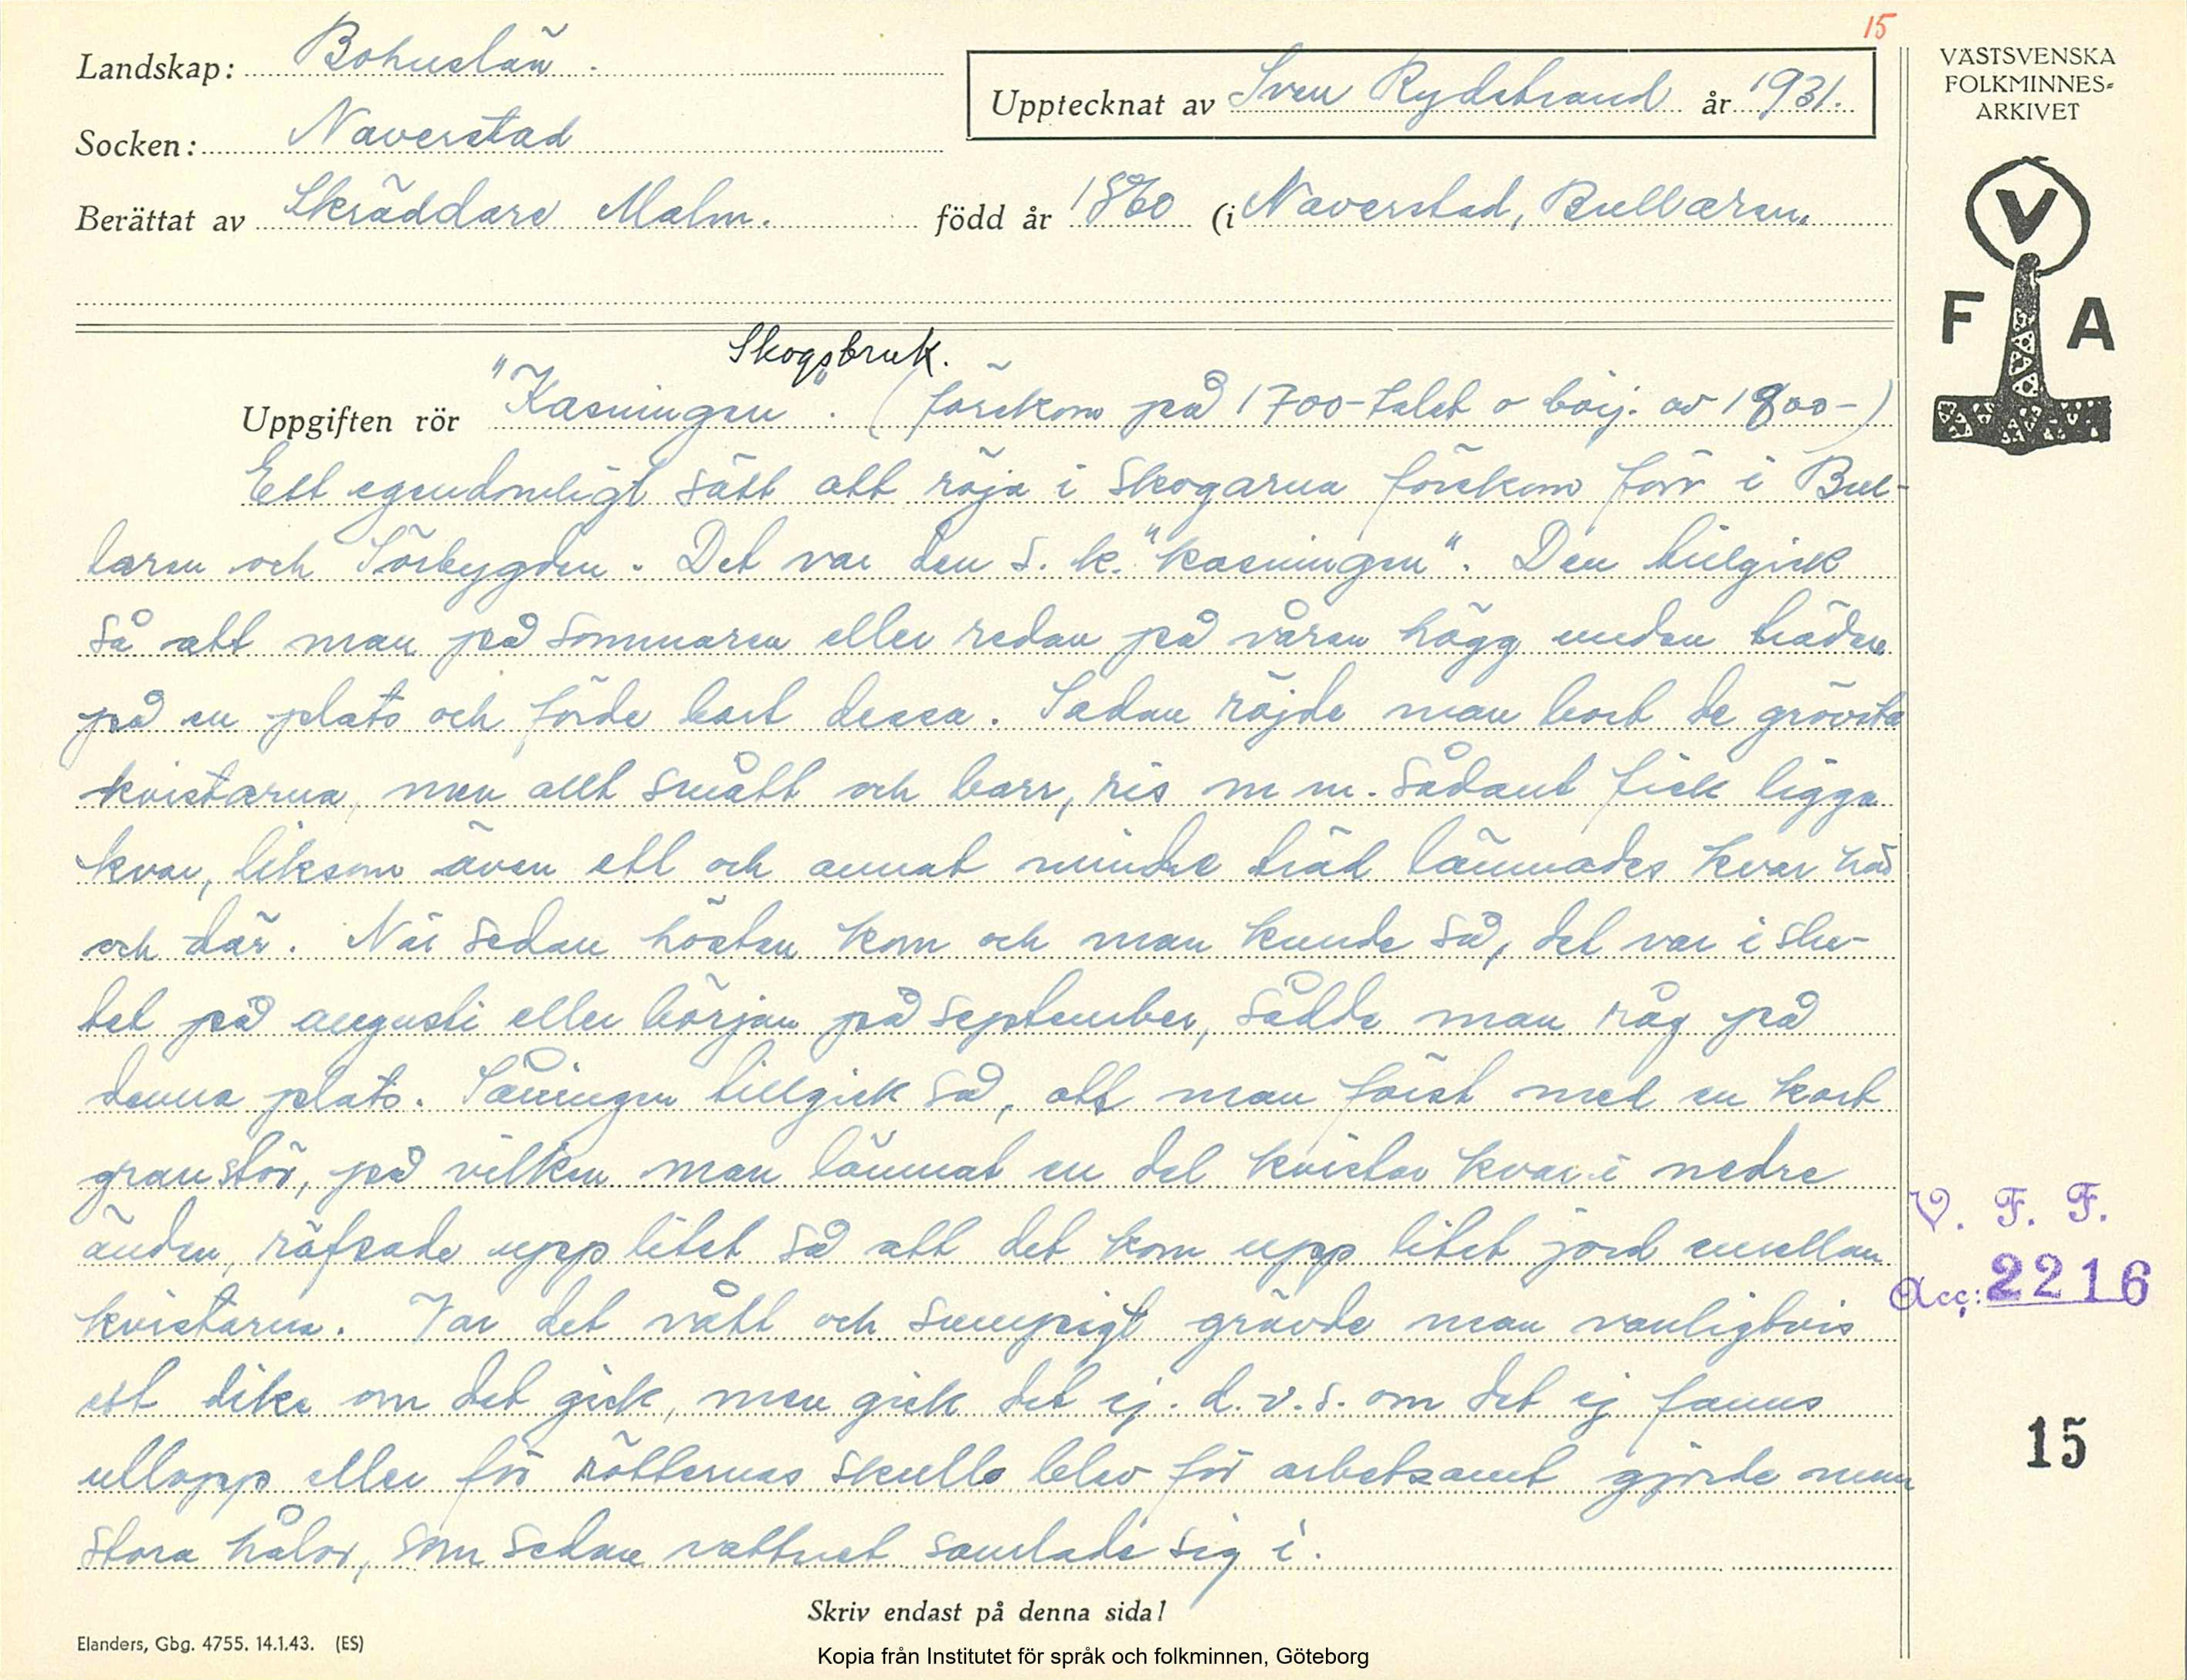 15
Landskap: Bohuslän.
Upptecknat av Sven Rydstrand år 1931.
VÄSTSVENSKA
FOLKMINNES-
ARKIVET
Socken: Naverstad
Berättat av Skräddare Malm. född år 1860 (i Naverstad, Bullaren.
V
F A
Skogsbruk.
Uppgiften rör "Kasningen". (förekom på 1700-talet o börj. av 1800-)
Ett egendomligt sätt att röja i skogarna förekom förr i Bul-
laren och Sörbygden. Det var den s. k. "kasningen". Den tillgick
så att man på sommaren eller redan på våren högg undan träden
på en plats och förde bort dessa. Sedan röjde man bort de grövsta
kvistarna, men allt smått och barr, ris m m. sådant fick ligga
kvar, liksom även ett och annat mindre träd lämnades kvar här
och där. När sedan hösten kom och man kunde så, det var i slu-
tet på augusti eller början på september, sådde man råg på
denna plats. Såningen tillgick så, att man först med en kort
granstör, på vilken man lämnat en del kvistar kvar i nedre
änden, räfsade upp litet så att det kom upp litet jord emellan
kvistarna. Var det vått och sumpigt grävde man vanligtvis
ett dike om det gick, men gick det ej. d.v.s. om det ej fanns
utlopp eller för rötternas skull blev för arbetsamt gjorde man
stora hålor, som sedan vattnet samlade sig i.
V. F. F.
Acc: 2216
15
Skriv endast på denna sida!
Elanders, Gbg. 4755. 14.1.43. (ES)
Kopia från Institutet för språk och folkminnen, Göteborg